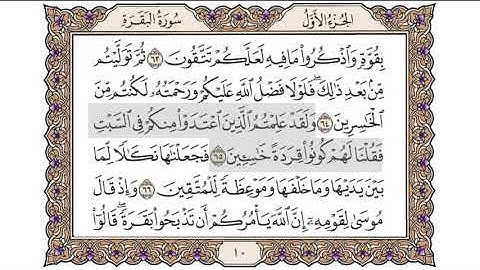 الجزء الأول
سورة البقرة
بِقُوَّةٍ وَاذْكُرُوا مَا فِيهِ لَعَلَّكُمْ تَتَّقُونَ ٦٣ ثُمَّ تَوَلَّيْتُم
مِّنْ بَعْدِ ذَلِكَ فَلَوْلَا فَضْلُ اللَّهِ عَلَيْكُمْ وَرَحْمَتُهُ لَكُنْتُم مِّنَ
الْخَاسِرِينَ ٦٤ وَلَقَدْ عَلِمْتُمُ الَّذِينَ اعْتَدَوْا مِنْكُمْ فِي السَّبْتِ
فَقُلْنَا لَهُمْ كُونُوا قِرَدَةً خَاسِئِينَ ٦٥ فَجَعَلْنَاهَا نَكَالًا لِّمَا
بَيْنَ يَدَيْهَا وَمَا خَلْفَهَا وَمَوْعِظَةً لِّلْمُتَّقِينَ ٦٦ وَإِذْ قَالَ
مُوسَى لِقَوْمِهِ إِنَّ اللَّهَ يَأْمُرُكُمْ أَن تَذْبَحُوا بَقَرَةً قَالُوا
١٠